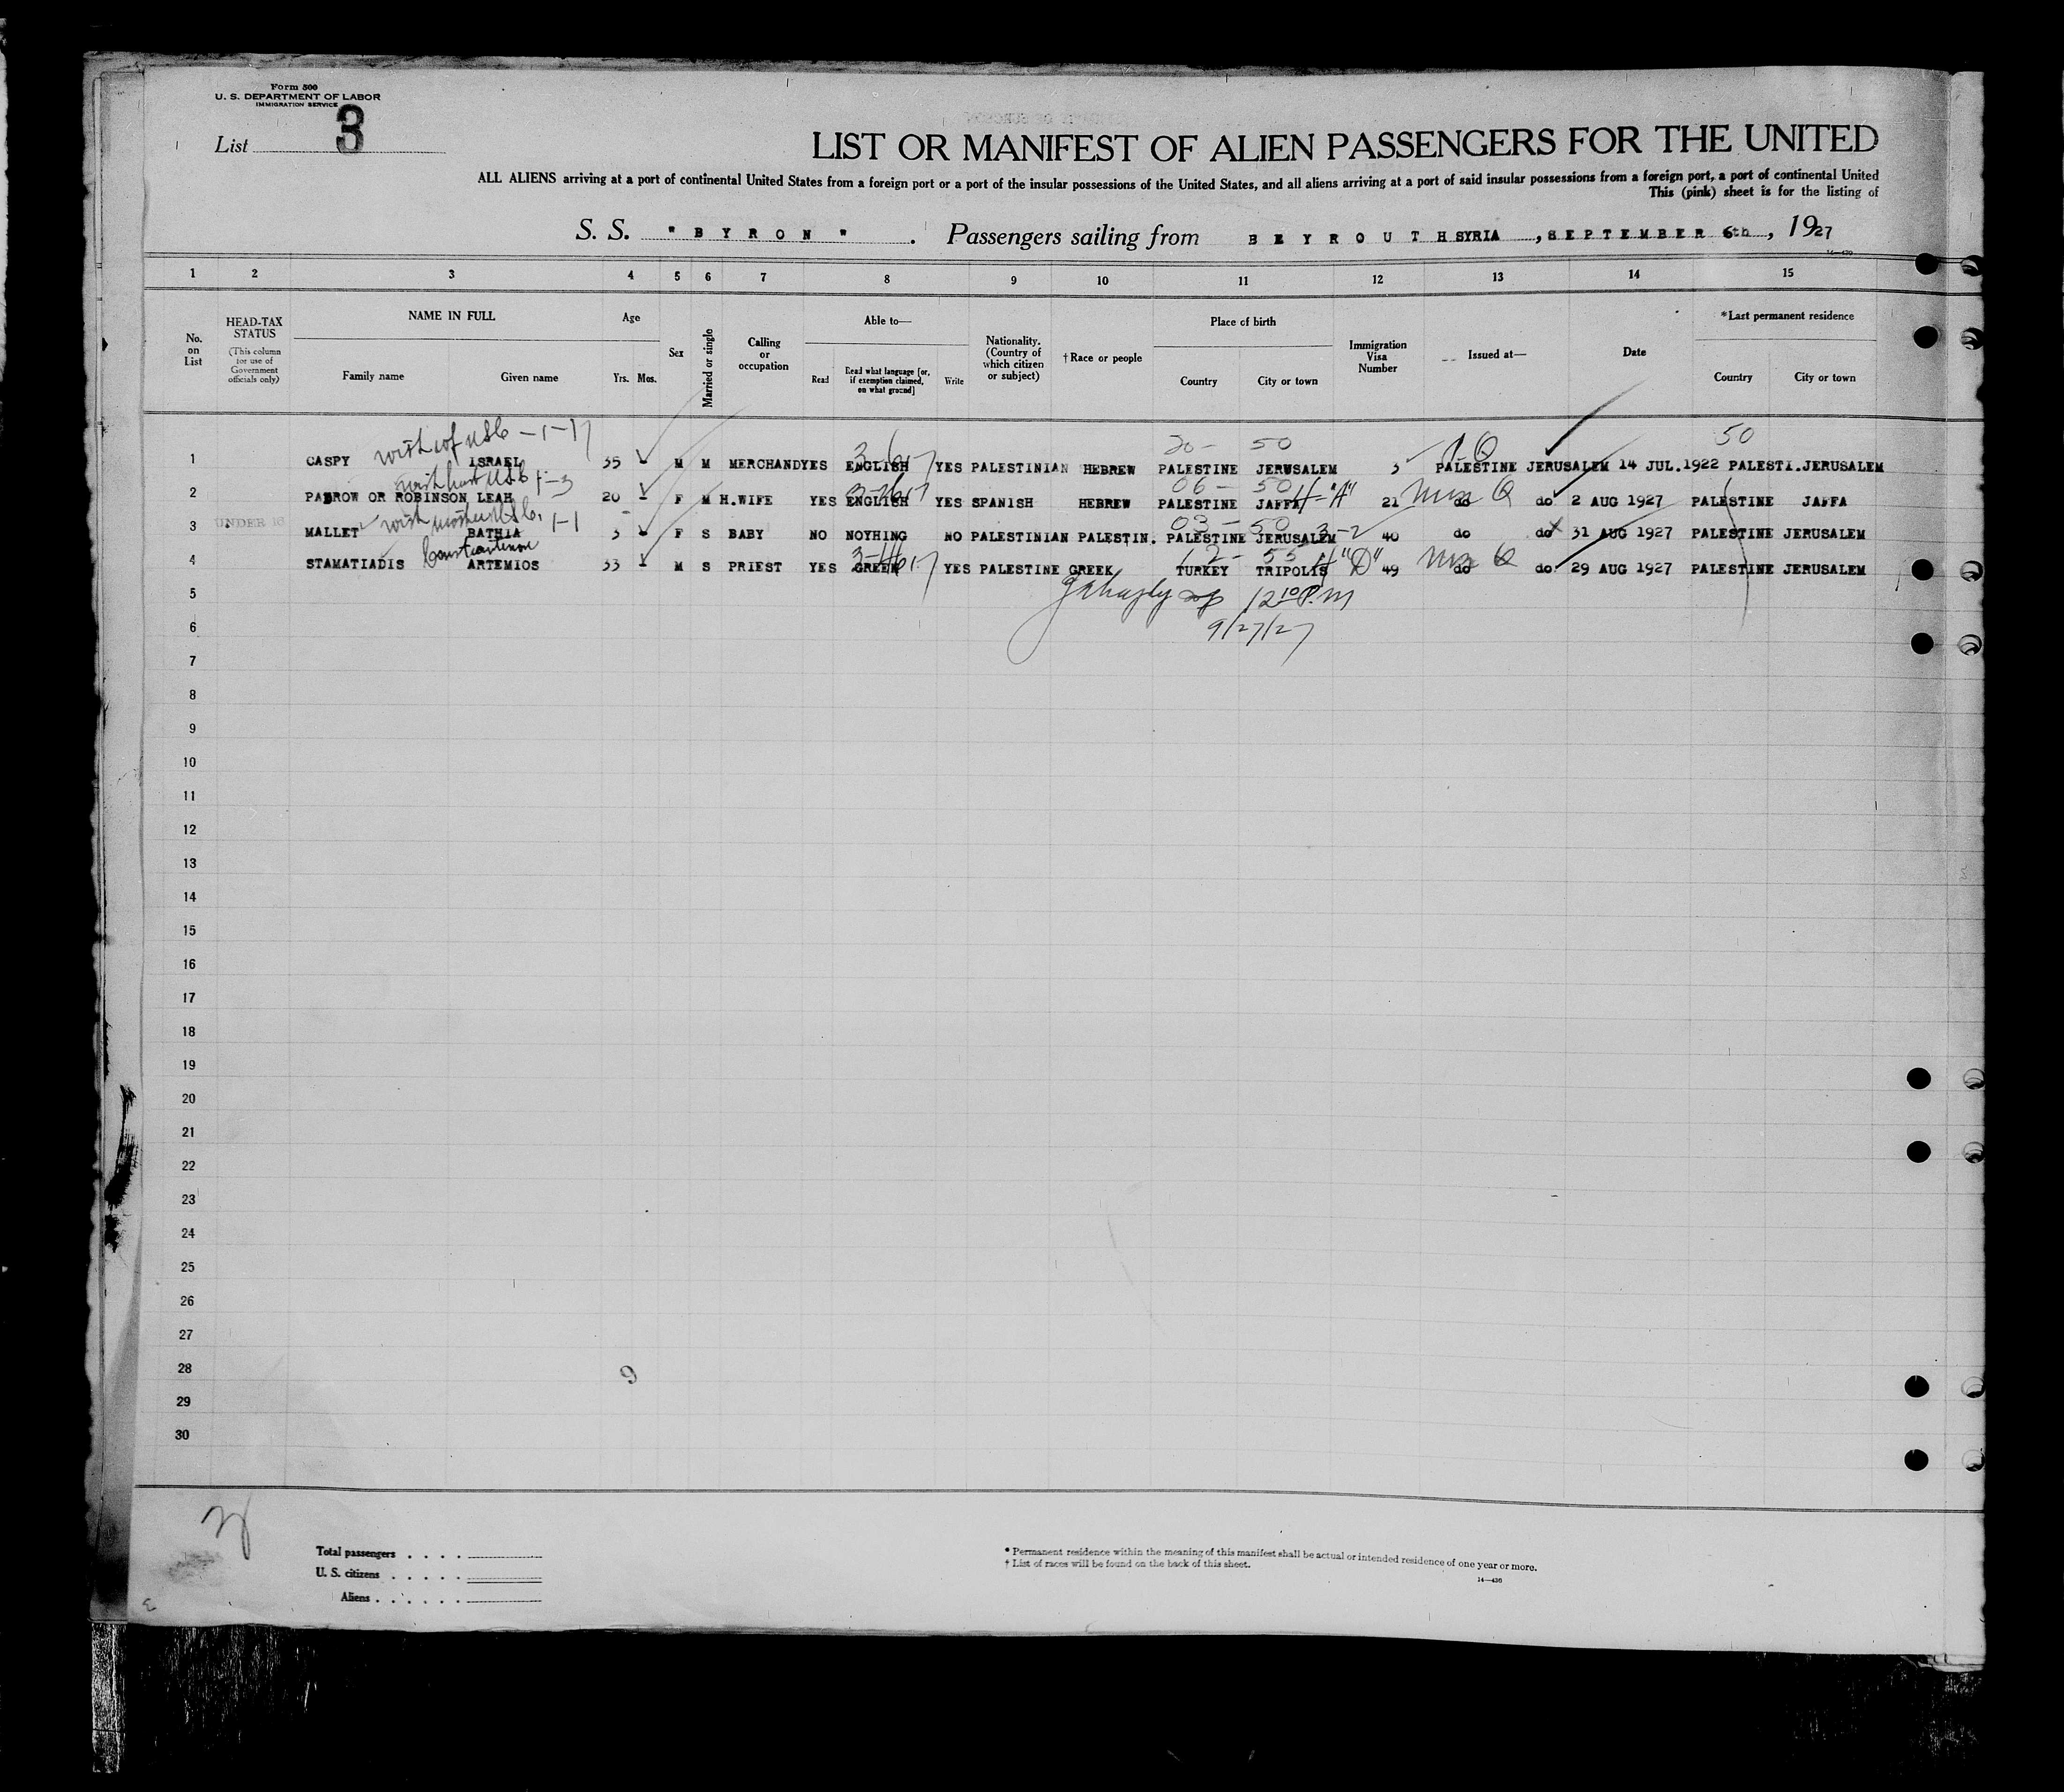 Form 500
U. S. DEPARTMENT OF LABOR
IMMIGRATION SERVICE
List 3
LIST OR MANIFEST OF ALIEN PASSENGERS FOR THE UNITED
ALL ALIENS arriving at a port of continental United States from a foreign port or a port of the insular possessions of the United States, and all aliens arriving at a port of said insular possessions from a foreign port, a port of continental United
This (pink) sheet is for the listing of
S. S. "BYRON". Passengers sailing from BEYROUTH SYRIA, SEPTEMBER 6th, 1927
1 2 3 4 5 6 7 8 9 10 11 12 13 14 15
No. on List
HEAD-TAX STATUS
(This column for use of Government officials only)
NAME IN FULL
Family name Given name
Age
Yrs. Mos.
Sex
Married or single
Calling or occupation
Able to—
Read
Read what language [or, if exemption claimed, on what ground]
Write
Nationality. (Country of which citizen or subject)
†Race or people
Place of birth
Country City or town
Immigration Visa Number
Issued at—
Date
*Last permanent residence
Country City or town
20- 50 50
1 CASPY ISRAEL 35 - M M MERCHAND YES ENGLISH YES PALESTINIAN HEBREW PALESTINE JERUSALEM 3 PALESTINE JERUSALEM 14 JUL.1922 PALESTI.JERUSALEM
06- 50
2 PABROW OR ROBINSON LEAH 20 - F M H.WIFE YES ENGLISH YES SPANISH HEBREW PALESTINE JAFFA 21 do do 2 AUG 1927 PALESTINE JAFFA
UNDER 16
03-50
3 MALLET BATHIA 3 - F S BABY NO NOYHING NO PALESTINIAN PALESTIN. PALESTINE JERUSALEM 3-2 40 do do 31 AUG 1927 PALESTINE JERUSALEM
4 STAMATIADIS ARTEMIOS 33 - M S PRIEST YES GREEK YES PALESTINE GREEK TURKEY TRIPOLIS "D" 49 do do 29 AUG 1927 PALESTINE JERUSALEM
5 12 10 P.M
6 9/27/27
7
8
9
10
11
12
13
14
15
16
17
18
19
20
21
22
23
24
25
26
27
28 9
29
30
Total passengers
U. S. citizens
Aliens
* Permanent residence within the meaning of this manifest shall be actual or intended residence of one year or more.
† List of races will be found on the back of this sheet.
14—430